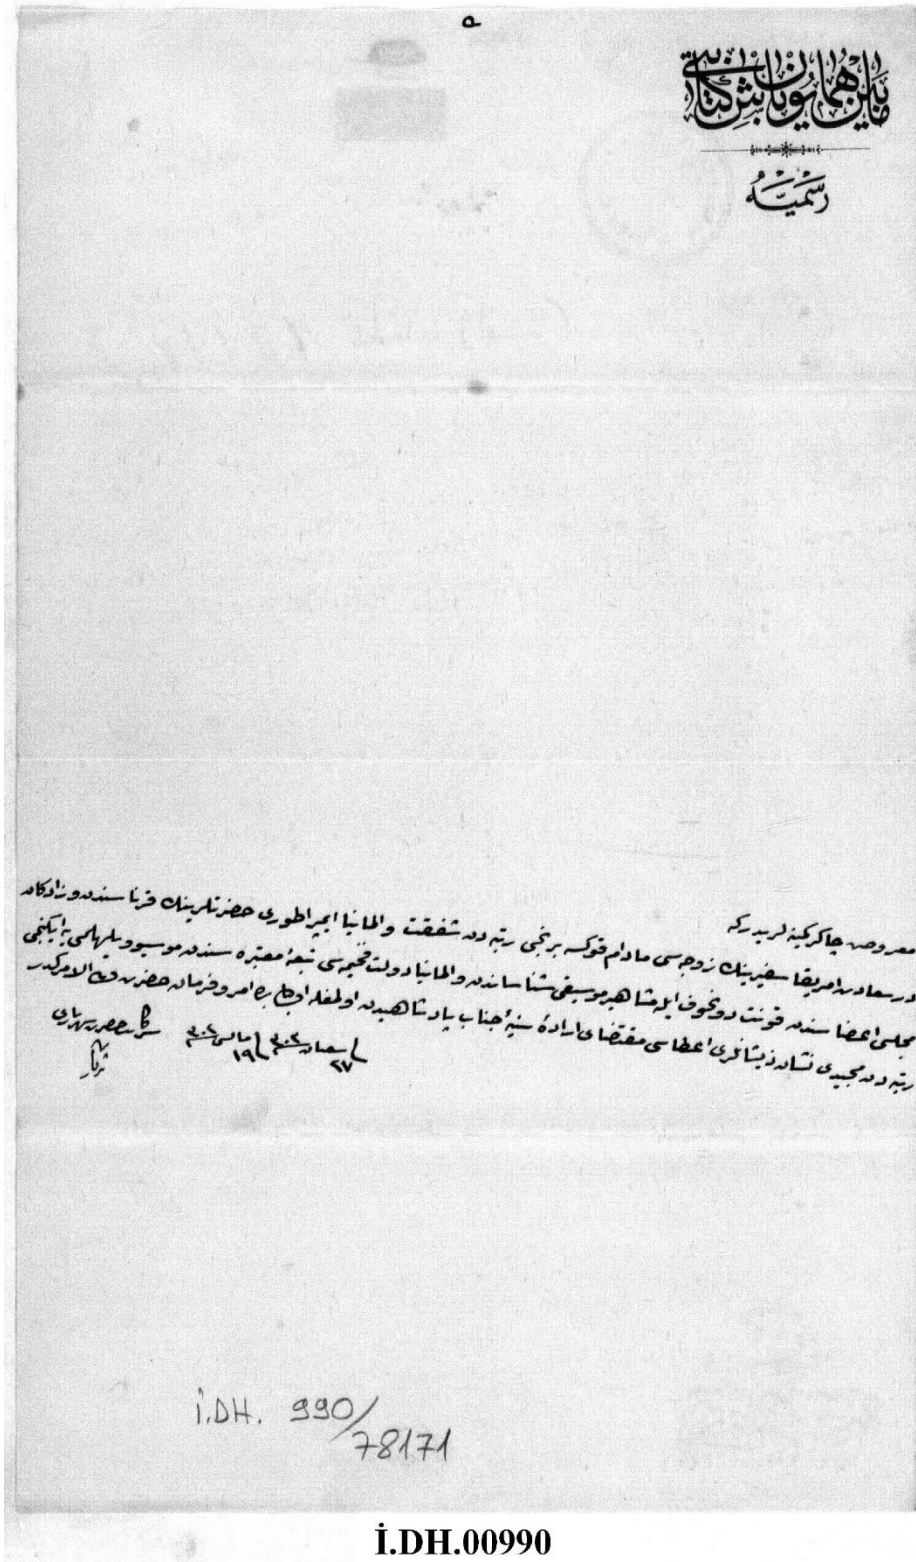 مابين همايون باش كتابتى
رسميه
معروض چاكر كمينه لريدركه
درسعادت امريقا سفيرينك زوجه سى مادام قوكسه برنجى رتبه دن شفقت والمانيا ايمپراطورى حضرتلرينك قرناسندن وزادكان
مجلسى اعضاسندن قونت دو ايله مشاهير موسيقى شناساندن والمانيا دولت فخيمه سى تبعهٔ معتبره سندن موسيو ويلهلمى يه ايكنجى
رتبه دن مجيدى نشان ذيشانلرى اعطاسى مقتضاى ارادهٔ سنيهٔ جناب پادشاهيدن اولمغله اولبابده امر وفرمان حضرت ولى الامركدر
٢٧ ١٩ مايس سركاتب حضرت شهريارى
ثريا
İ.DH. 990/
78171
İ.DH.00990